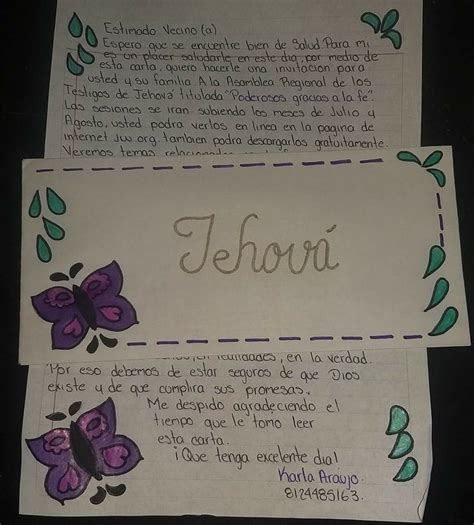 Estimado Vecino (a)
Espero que se encuentre bien de Salud Para mi
es un placer saludarle en este dia, por medio de
esta carta, quiero hacerle una invitación para
usted y su familia A la Asamblea Regional de los
Testigos de Jehová titulada "Poderosos gracias a la fe".
Las sesiones se iran subiendo los meses de Julio y
Agosto, usted podra verlos en linea en la pagina de
internet jw.org. tambien podra descargarlos gratuitamente.
Veremos temas
Jehová
realidades, en la verdad.
Por eso debemos de estar seguros de que Dios
existe y de que cumplira sus promesas.
Me despido agradeciendo el
tiempo que le tomo leer
esta carta.
¡Que tenga excelente dia!
Karla Araujo.
8124485163.